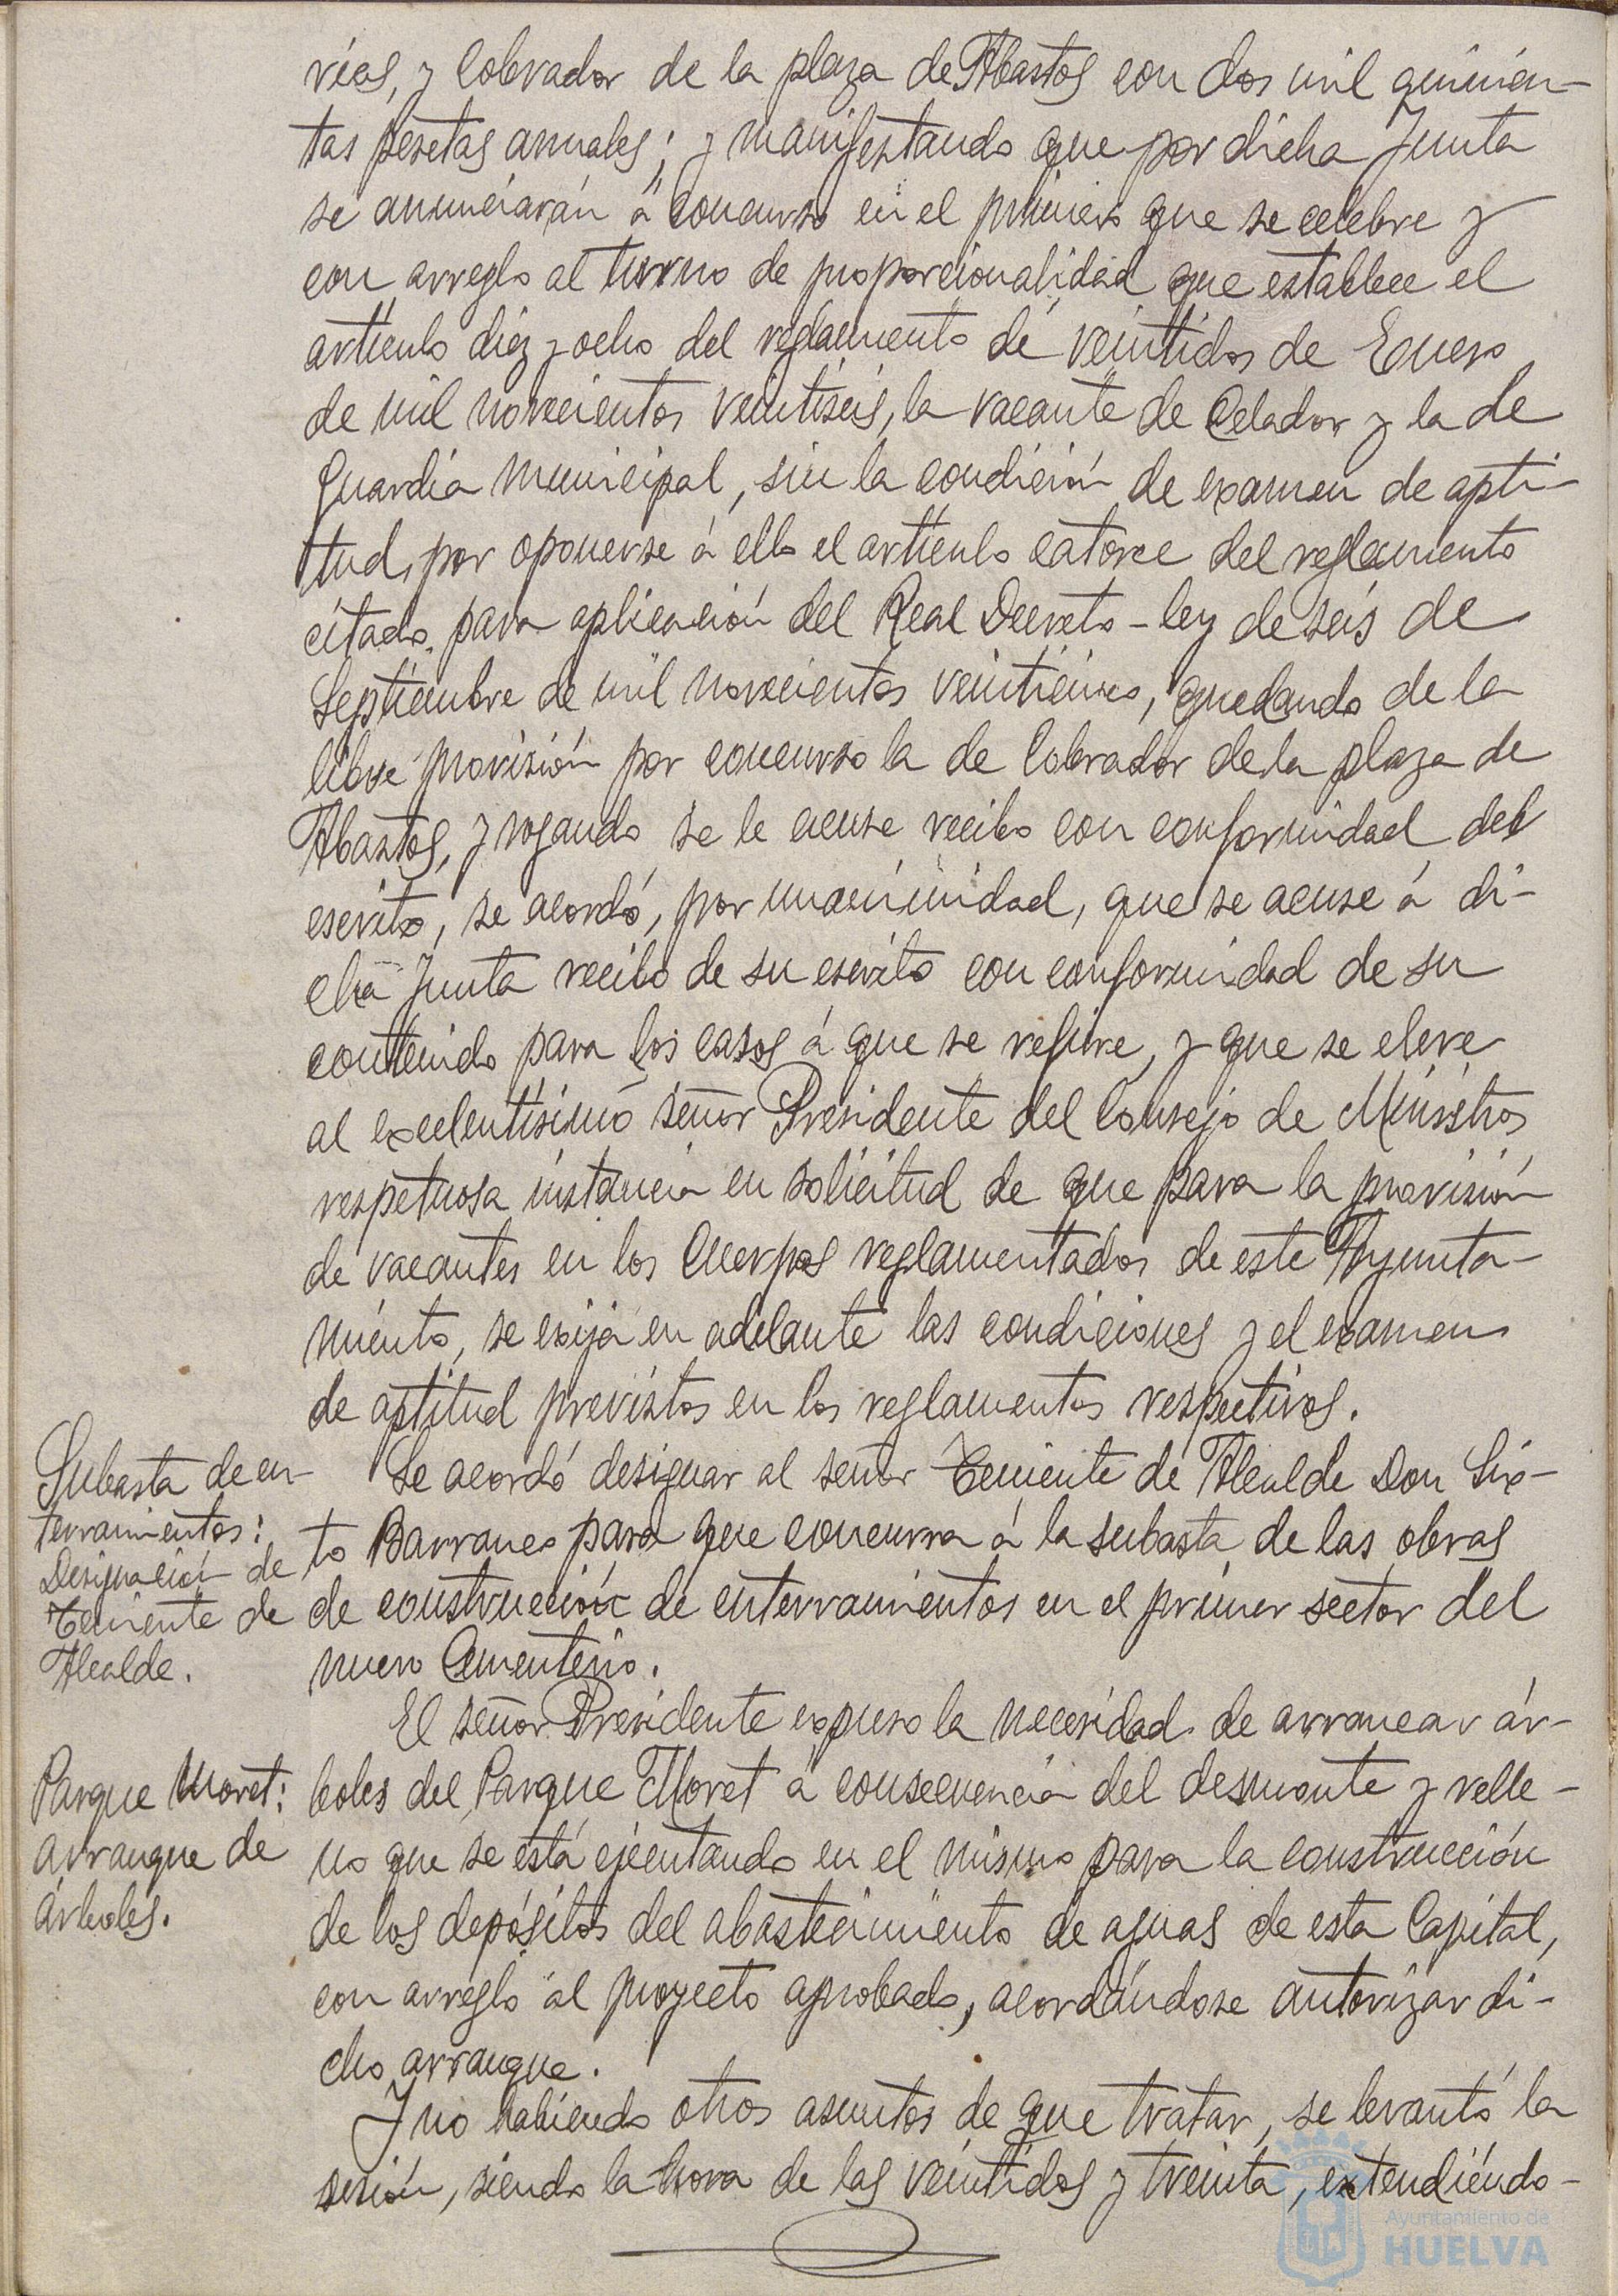 rias, y Cobrador de la plaza de Abastos con dos mil quinien-
tas pesetas anuales; y manifestando que por dicha Junta
se anunciarán á concurso en el primero que se celebre y
con arreglo al turno de proporcionalidad que establece el
artículo diez y ocho del reglamento de veintidos de Enero
de mil novecientos veintiseis, la vacante de Celador y la de
Guardia municipal, sin la condición de examen de apti-
tud, por oponerse á ello el artículo catorce del reglamento
citado, para aplicación del Real Decreto-ley de seis de
Septiembre de mil novecientos veinticinco, quedando de la
libre provisión por concurso la de Cobrador de la plaza de
Abastos, y rogando se le acuse recibo con conformidad del
escrito, se acordó, por unanimidad, que se acuse á di-
cha Junta recibo de su escrito con conformidad de su
contenido para los casos á que se refiere, y que se eleve
al excelentísimo señor Presidente del Consejo de Ministros
respetuosa instancia en solicitud de que para la provisión
de vacantes en los Cuerpos reglamentados de este Ayunta-
miento, se exija en adelante las condiciones y el examen
de aptitud previstos en los reglamentos respectivos.
Subasta de en-
terramientos:
Designación de
Teniente de
Alcalde.
Se acordó designar al señor Teniente de Alcalde Don Six-
to Barranco para que concurra á la subasta de las obras
de construcción de enterramientos en el primer sector del
nuevo Cementerio.
Parque Moret:
arranque de
árboles.
El señor Presidente expuso la necesidad de arrancar ár-
boles del Parque Moret á consecuencia del desmonte y relle-
no que se está ejecutando en el mismo para la construcción
de los depósitos del abastecimiento de aguas de esta Capital,
con arreglo al proyecto aprobado, acordándose autorizar di-
cho arranque.
Y no habiendo otros asuntos de que tratar, se levantó la
sesión, siendo la hora de las veintidos y treinta, extendiéndo-
Ayuntamiento de
HUELVA